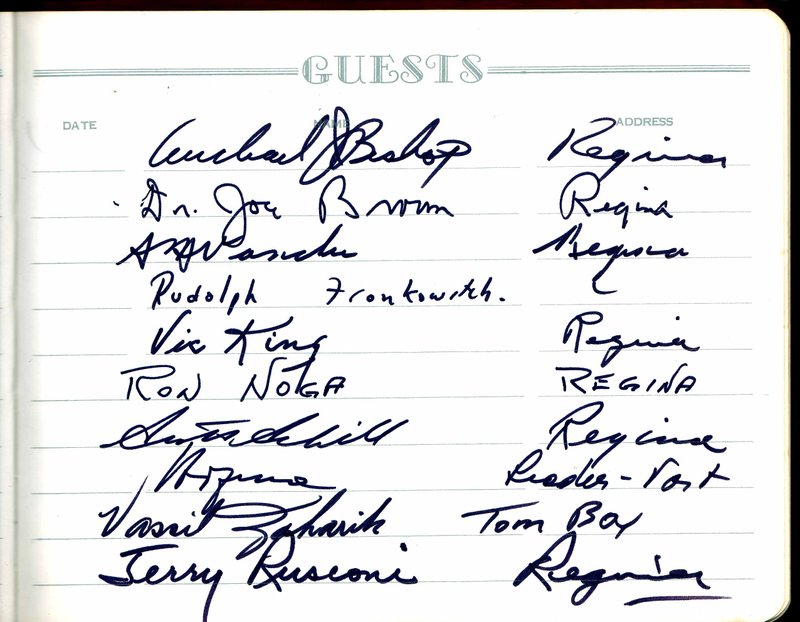 GUESTS
DATE NAME ADDRESS
Michael J Bishop Regina
Dr. Joe Brown Regina
Regina
Rudolph Fronkowitch.
Vic King Regina
RON NOGA REGINA
Schill Regina
Leader-Post
Vassil Zaharik Tom Box
Jerry Rusconi Regina